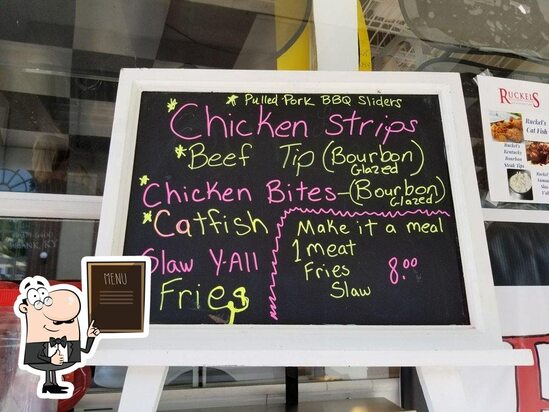 * Pulled-Pork BBQ Sliders
* Chicken Strips
* Beef Tip (Bourbon Glazed)
* Chicken Bites-(Bourbon Glazed)
* Catfish
Slaw Y-All
Fries
Make it a meal
1 meat
Fries
Slaw
8.00
MENU
RUCKELS
Ruckel's
Cat Fish
Ruckel's
Kentucky
Bourbon
Steak Tips
Ruckel's
BANK, KY